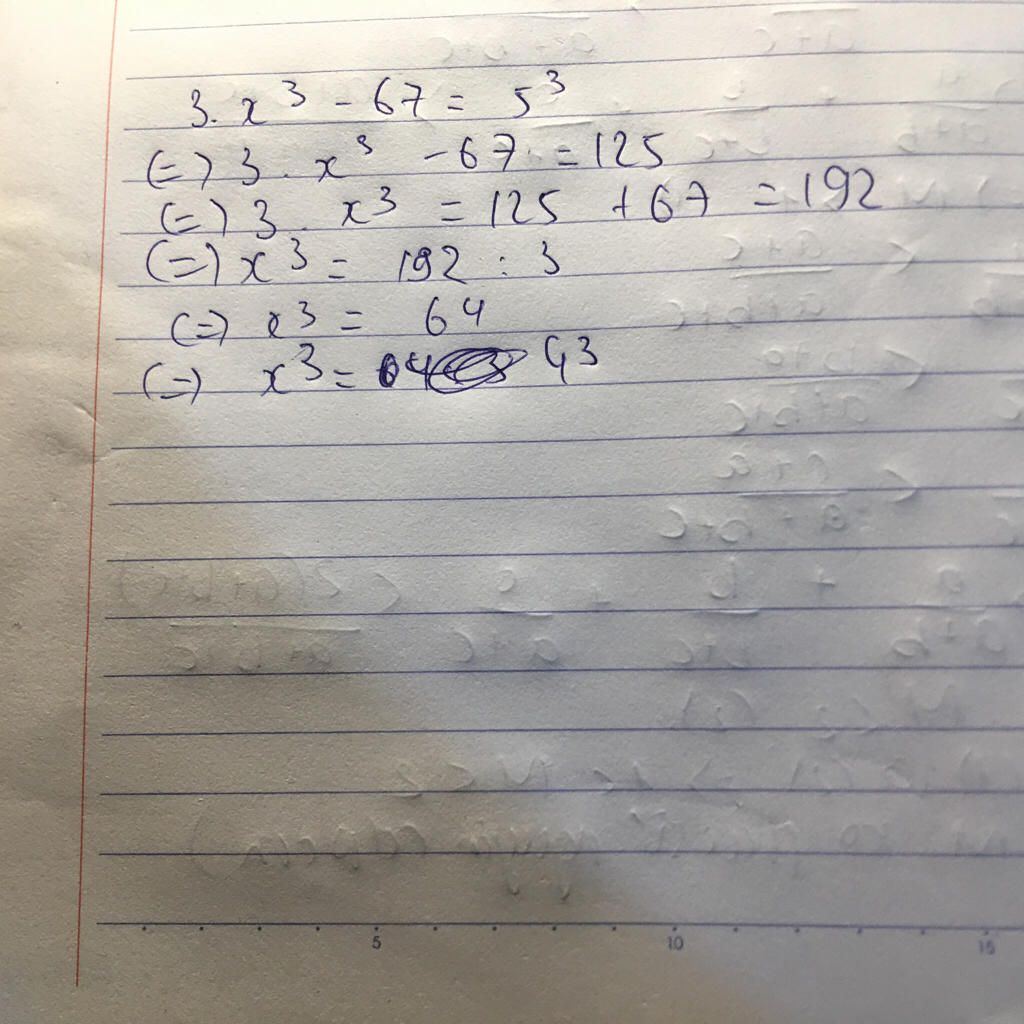 3. x³ - 67 = 5³
(=) 3. x³ - 67 = 125
(=) 3. x³ = 125 + 67 = 192
(=) x³ = 192 : 3
(=) x³ = 64
(=) x³ = 4³
5 10 15